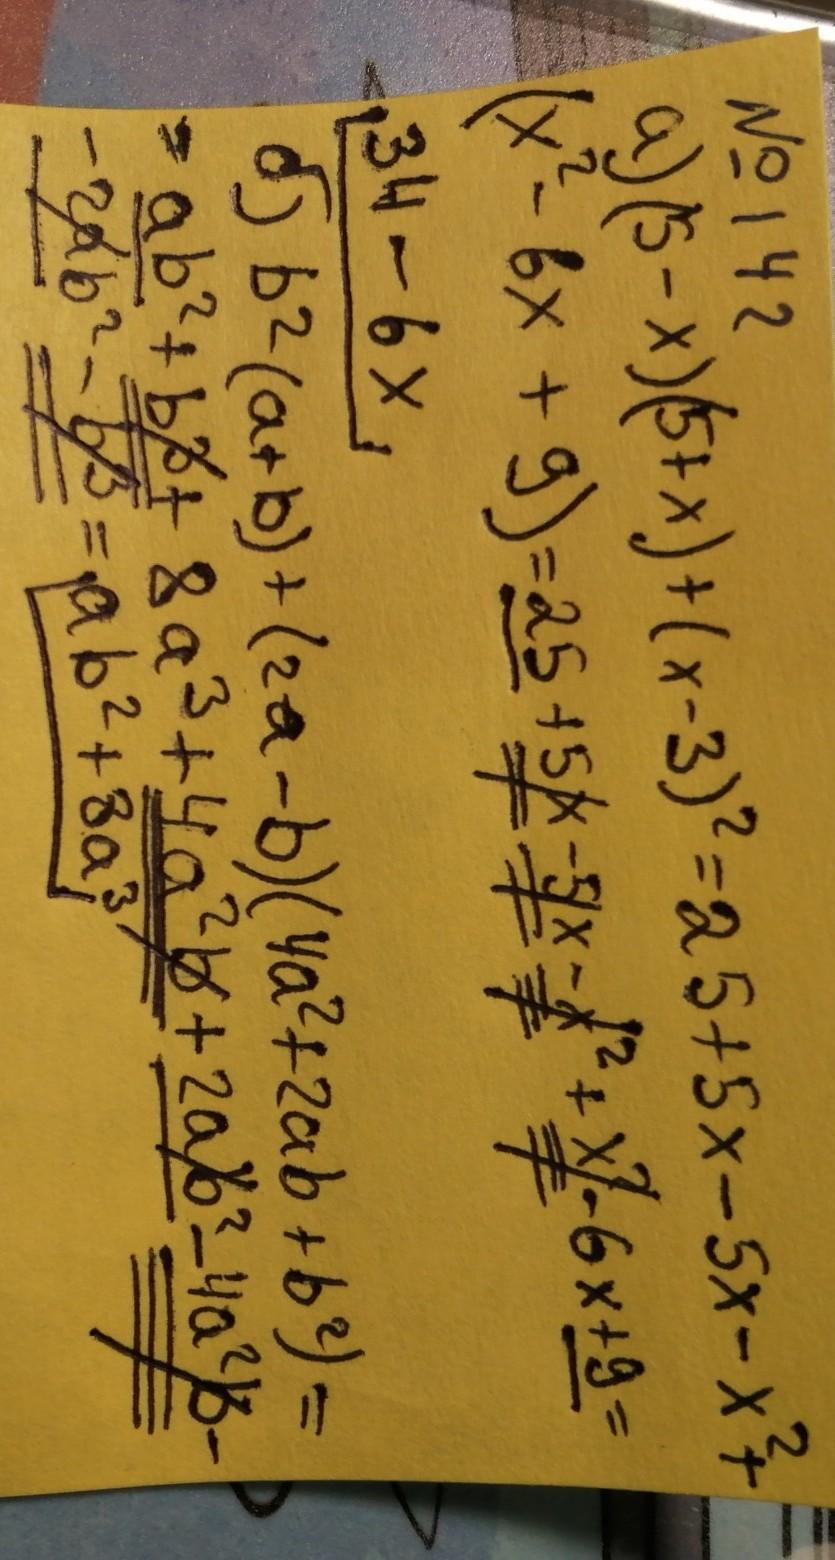 №142
а) (5-x)(5+x)+(x-3)² = 25+5x-5x-x²+
(x²-6x+9) = 25+5x-5x-x²+x²-6x+9=
34-6x
б) b²(a+b)+(2a-b)(4a²+2ab+b²)=
= ab²+b³+8a³+4a²b+2ab²-4a²b-
-2ab²-b³=ab²+8a³